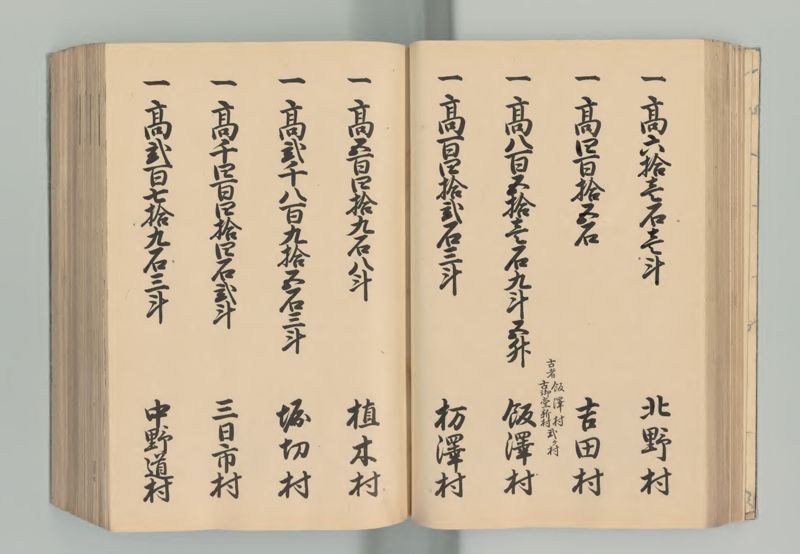 一 高六拾壱石壱斗 北野村
一 高四百拾五石 吉田村
一 高八百五拾壱石九斗五升 飯澤村
古者 飯澤村
古御堂新村 弐ヶ村
一 高百四拾弐石三斗 杤澤村
一 高五百四拾九石八斗 植木村
一 高弐千八百九拾五石三斗 堀切村
一 高千四百四拾四石弐斗 三日市村
一 高弐百七拾九石三斗 中野道村